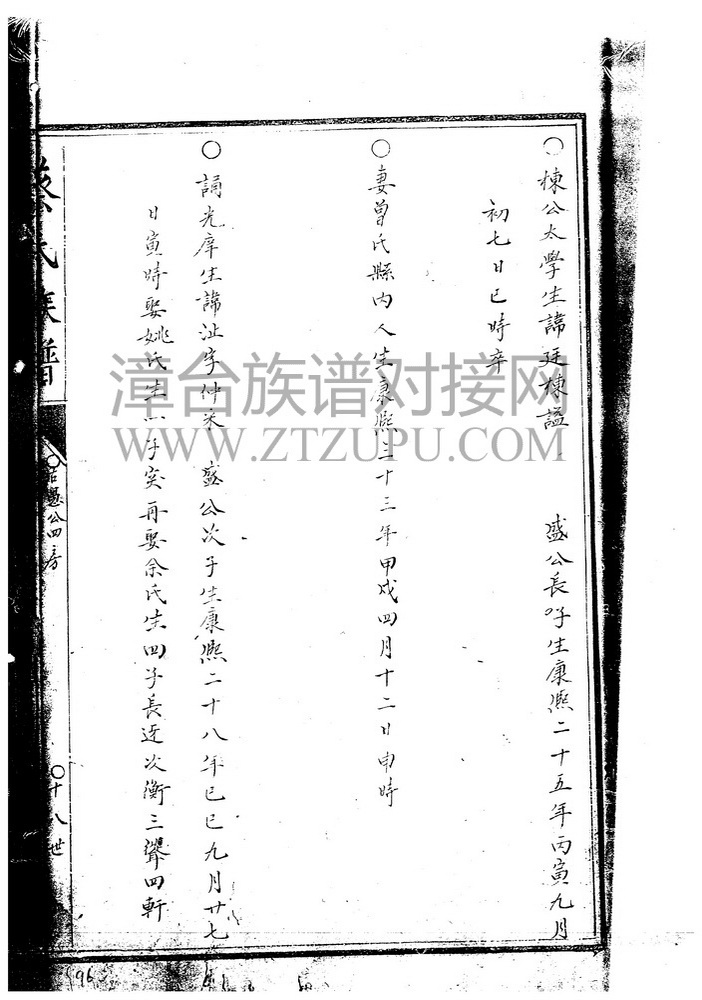 ○棟公太學生諱廷棟謚 盛公長子生康熙二十五年丙寅九月
初七日巳時卒
○妻曾氏縣內人生康熙三十三年甲戌四月十二日申時
○誦光庠生諱沚字仲米 盛公次子生康熙二十八年己巳九月廿七
日寅時娶姚氏生一子奕再娶余氏生四子長近次衡三 四軒
蔡氏族譜
公四房
○十八世
96
漳台族谱对接网
WWW.ZTZUPU.COM